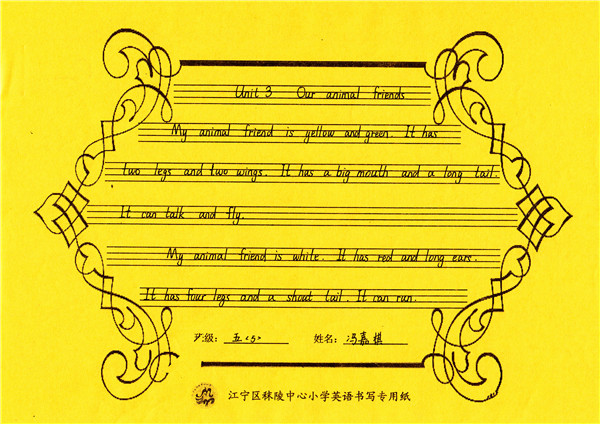 Unit 3 Our animal friends
My animal friend is yellow and green. It has
two legs and two wings. It has a big mouth and a long tail.
It can talk and fly.
My animal friend is white. It has red and long ears.
It has four legs and a shout tail. It can run.
班级: 五<5> 姓名: 冯嘉棋
江宁区秣陵中心小学英语书写专用纸